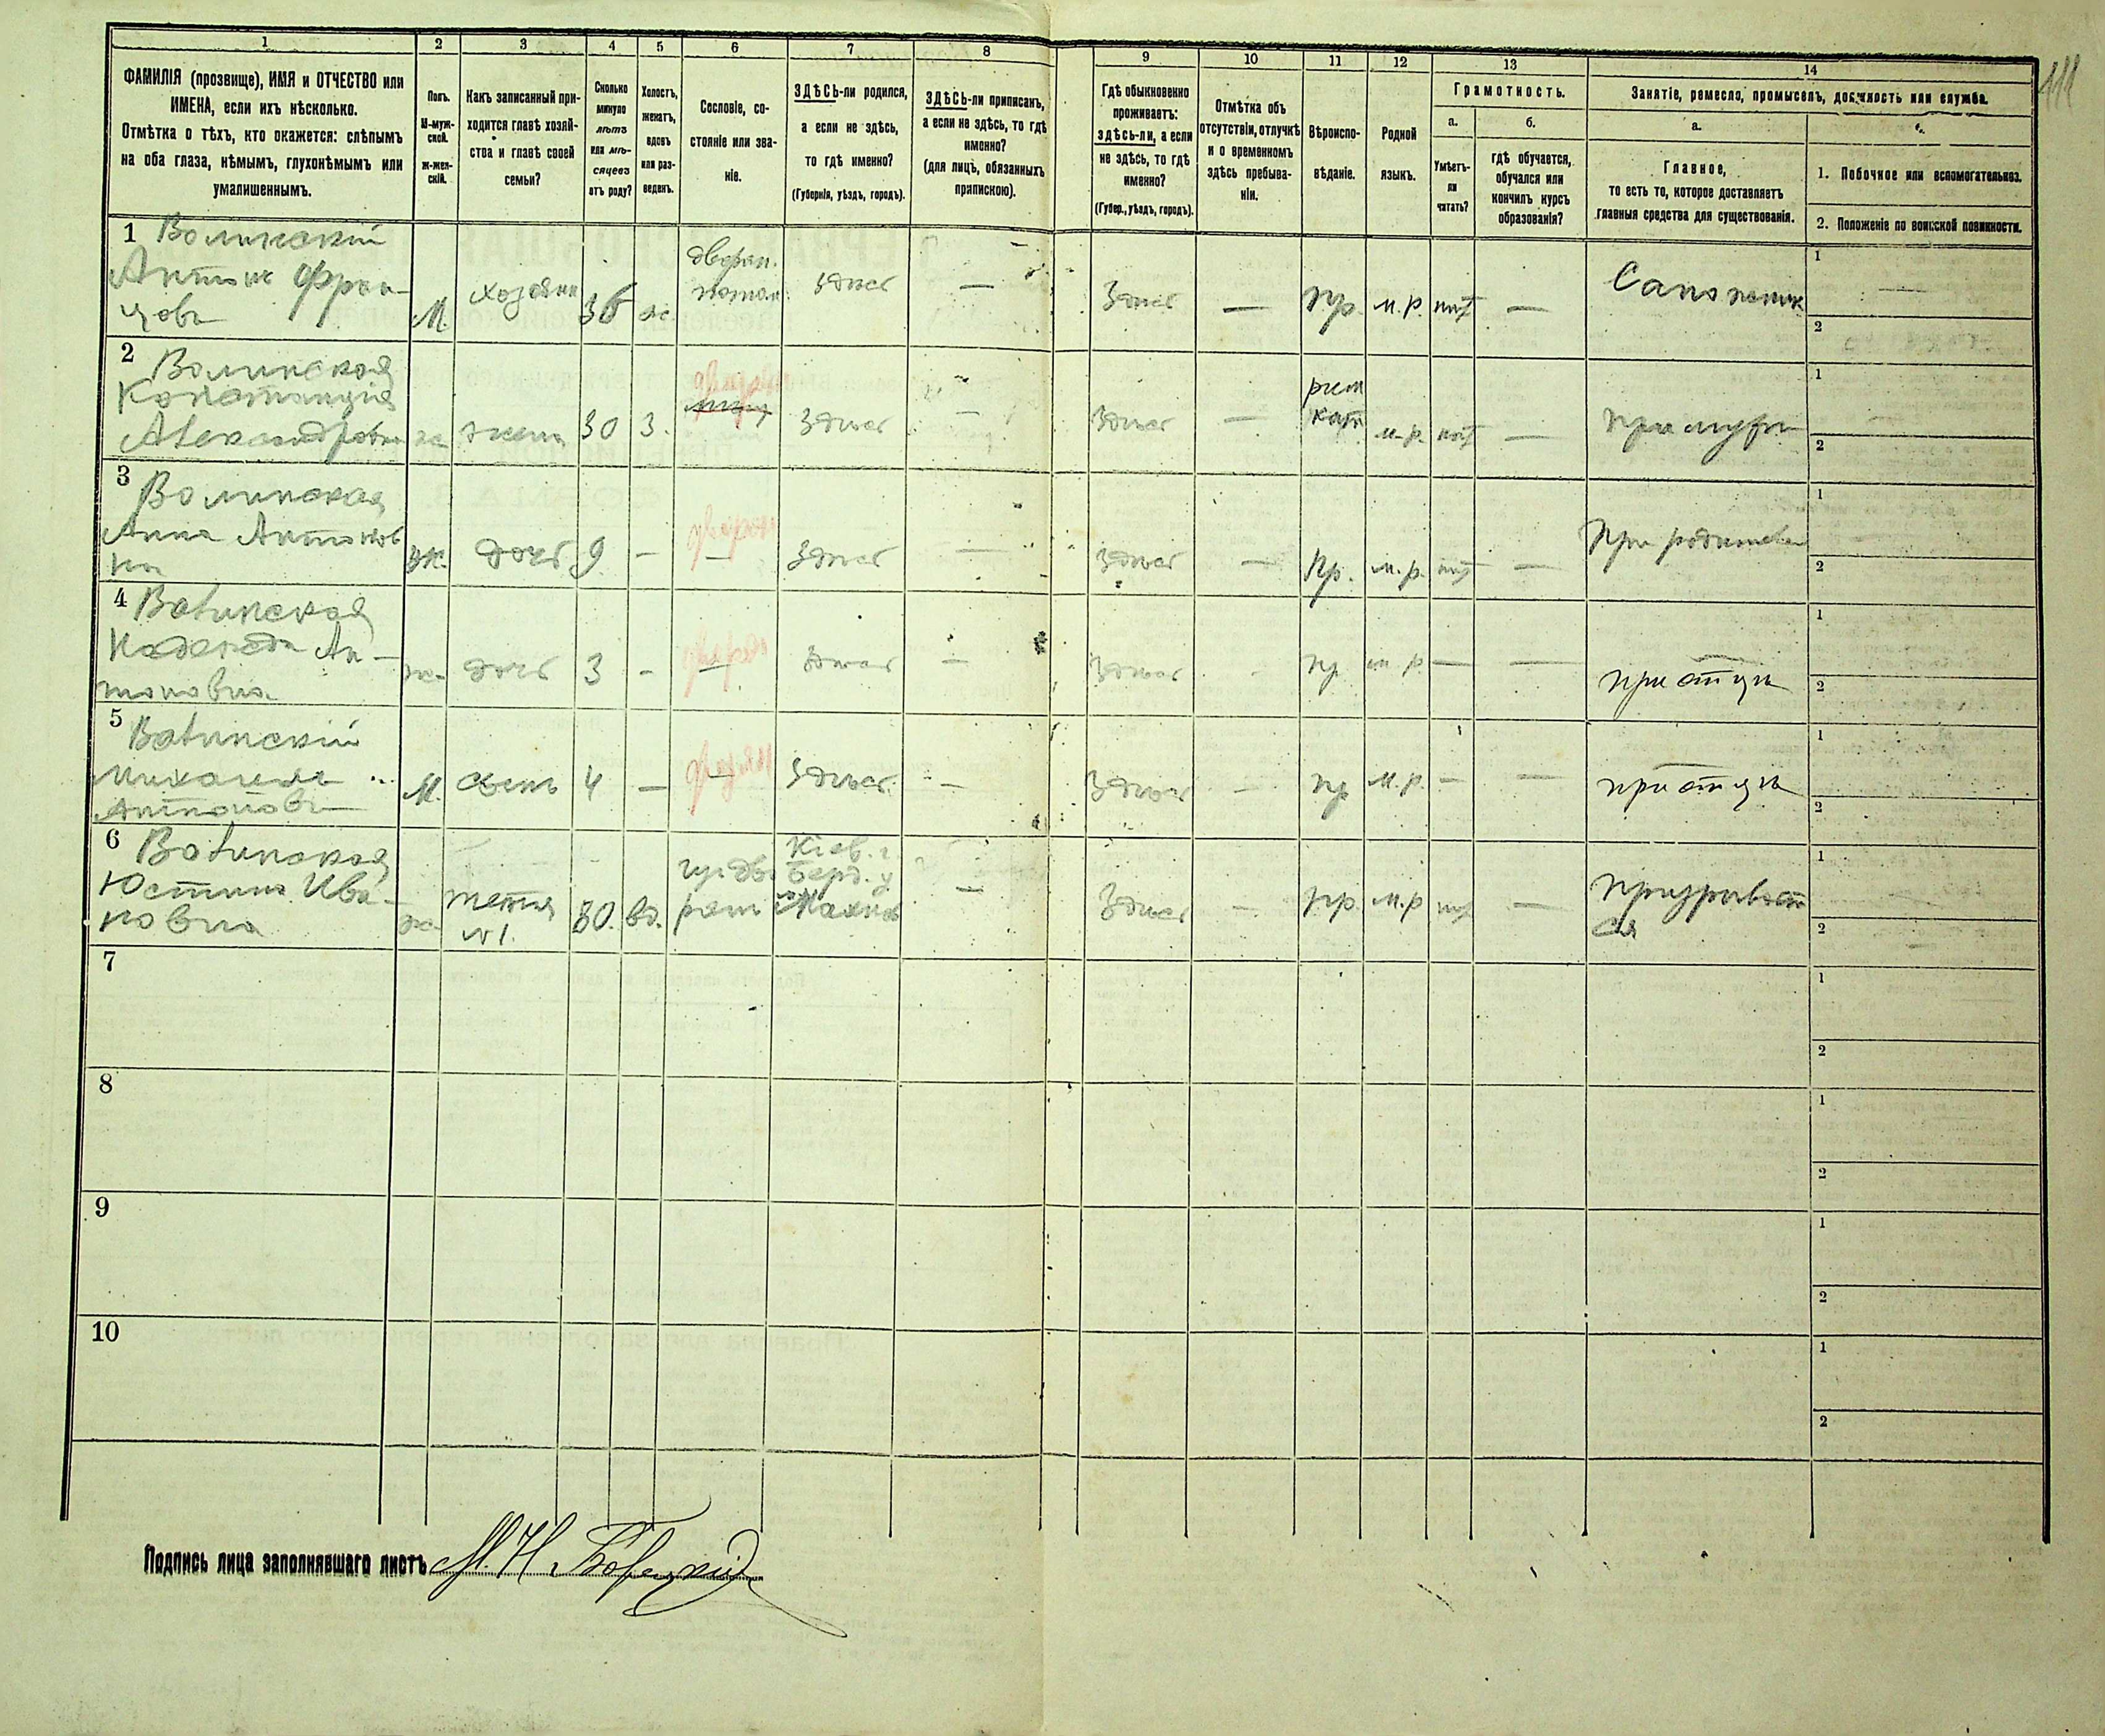 1 2 3 4 5 6 7 8 9 10 11 12 13 14
ФАМИЛІЯ (прозвище), ИМЯ и ОТЧЕСТВО или
ИМЕНА, если ихъ нѣсколько.
Отмѣтка о тѣхъ, кто окажется: слѣпымъ
на оба глаза, нѣмымъ, глухонѣмымъ или
умалишеннымъ.
Полъ.
М-муж-
ской.
ж-жен-
скій.
Какъ записанный при-
ходится главѣ хозяй-
ства и главѣ своей
семьи?
Сколько
минуло
лѣтъ
или мѣ-
сяцевъ
отъ роду?
Холостъ,
женатъ,
вдовъ
или раз-
веденъ.
Сословіе, со-
стояніе или зва-
ніе.
ЗДѢСЬ-ли родился,
а если не здѣсь,
то гдѣ именно?
(Губернія, уѣздъ, городъ).
ЗДѢСЬ-ли приписанъ,
а если не здѣсь, то гдѣ
именно?
(для лицъ, обязанныхъ
припискою).
Гдѣ обыкновенно
проживаетъ:
здѣсь-ли, а если
не здѣсь, то гдѣ
именно?
(Губер., уѣздъ, городъ).
Отмѣтка объ
отсутствіи, отлучкѣ
и о временномъ
здѣсь пребыва-
ніи.
Вѣроиспо-
вѣданіе.
Родной
языкъ.
Грамотность.
а.
Умѣетъ-
ли
читать?
б.
гдѣ обучается,
обучался или
кончилъ курсъ
образованія?
Занятіе, ремесло, промыселъ, должность или служба.
а.
Главное,
то есть то, которое доставляетъ
главныя средства для существованія.
1. Побочное или вспомогательное.
2. Положеніе по воинской повинности.
1 Волинскій
Антонъ Фран-
цовъ
М. хозяинъ 36 ж дворян. потом. здѣсь — Здѣсь — пр. м.р. нѣт — Сапожник
1
2
2 Волинская
Констанція
Александровн
ж жена 30 з. дворян здѣсь — здѣсь — рим кат м.р. нѣт — при мужѣ
1
2
3 Волинская
Анна Антонов
на
ж. дочь 9 — дворян — здѣсь — здѣсь — пр. м.р. нѣт — При родителе
1
2
4 Волинская
Надежда Ан-
тоновна
ж. дочь 3 - дворян — здѣсь — здѣсь пр м р — — при отцѣ
1
2
5 Волинскій
Михаилъ
Антоновъ
М. сынъ 4 — дворян — здѣсь — здѣсь — пр м.р. — — при отцѣ
1
2
6 Волинская
Юстина Ива-
новна
ж. тетка №1. 80. вд. Кіев. г. Берд. у. — Здѣсь — пр. м.р нѣт — призрѣвает
ся
1
2
7
1
2
8
1
2
9
1
2
10
1
2
Подпись лица заполнявшаго листъ М. Н. Борецкій